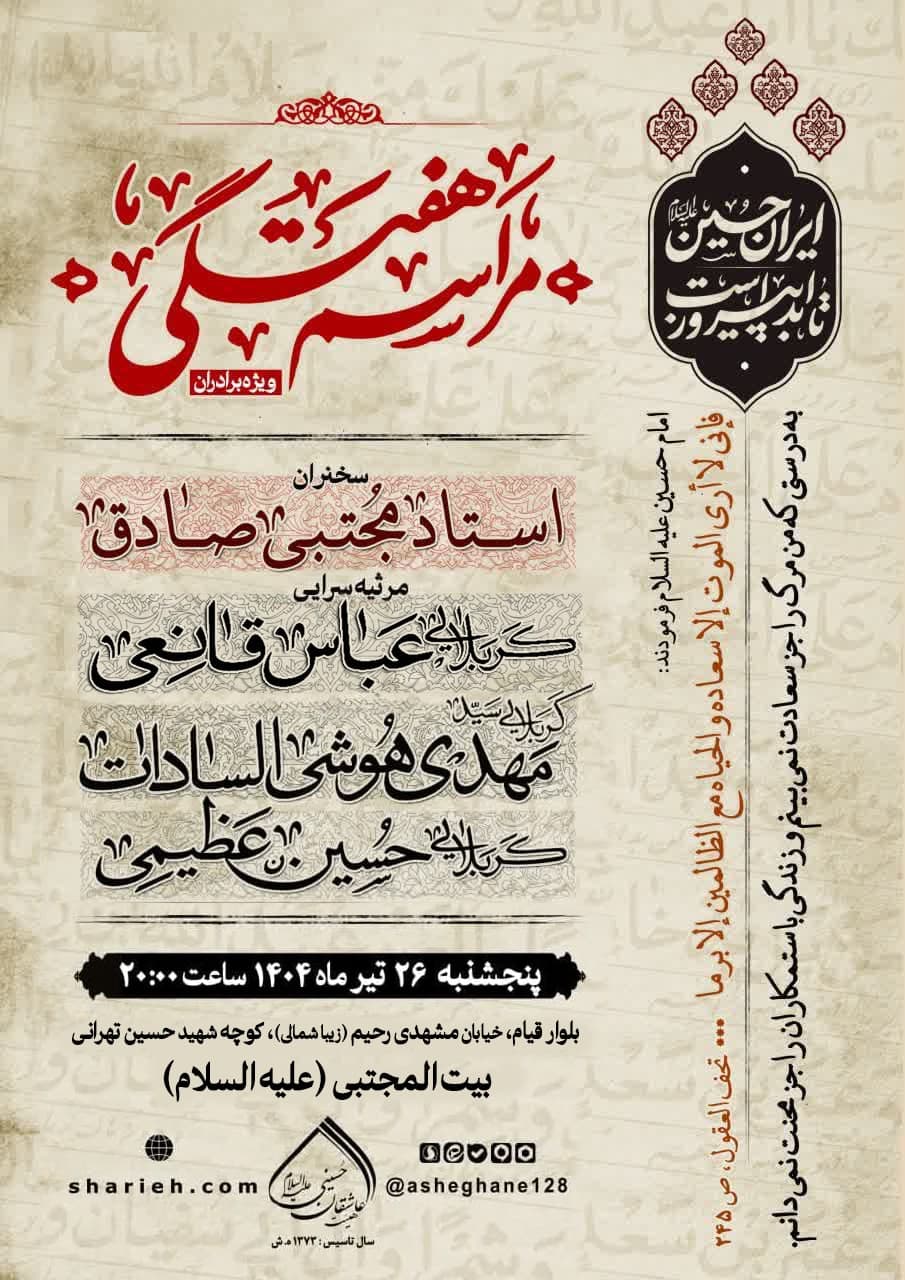 ایران حسین علیه السلام
تا ابد پیروز است
مراسم هفتگی
ویژه برادران
امام حسین علیه السلام فرمودند:
فإنی لا أری الموت إلا سعاده و الحیاه مع الظالمین إلا برما ... تحف العقول، ص ۲۴۵
به درستی که من مرگ را جز سعادت نمی بینم و زندگی با ستمکاران را جز محنت نمی دانم.
سخنران
استاد مجتبی صادق
مرثیه سرایی
کربلایی عباس قانعی
کربلایی سید
مهدی هوشی السادات
کربلایی حسین عظیمی
پنجشنبه ۲۶ تیر ماه ۱۴۰۴ ساعت ۲۰:۰۰
بلوار قیام، خیابان مشهدی رحیم (زیبا شمالی)، کوچه شهید حسین تهرانی
بیت المجتبی (علیه السلام)
sharieh.com
هیئت عاشقان حسینی علیه السلام
سال تاسیس: ۱۳۷۳ ه.ش
@asheghane128